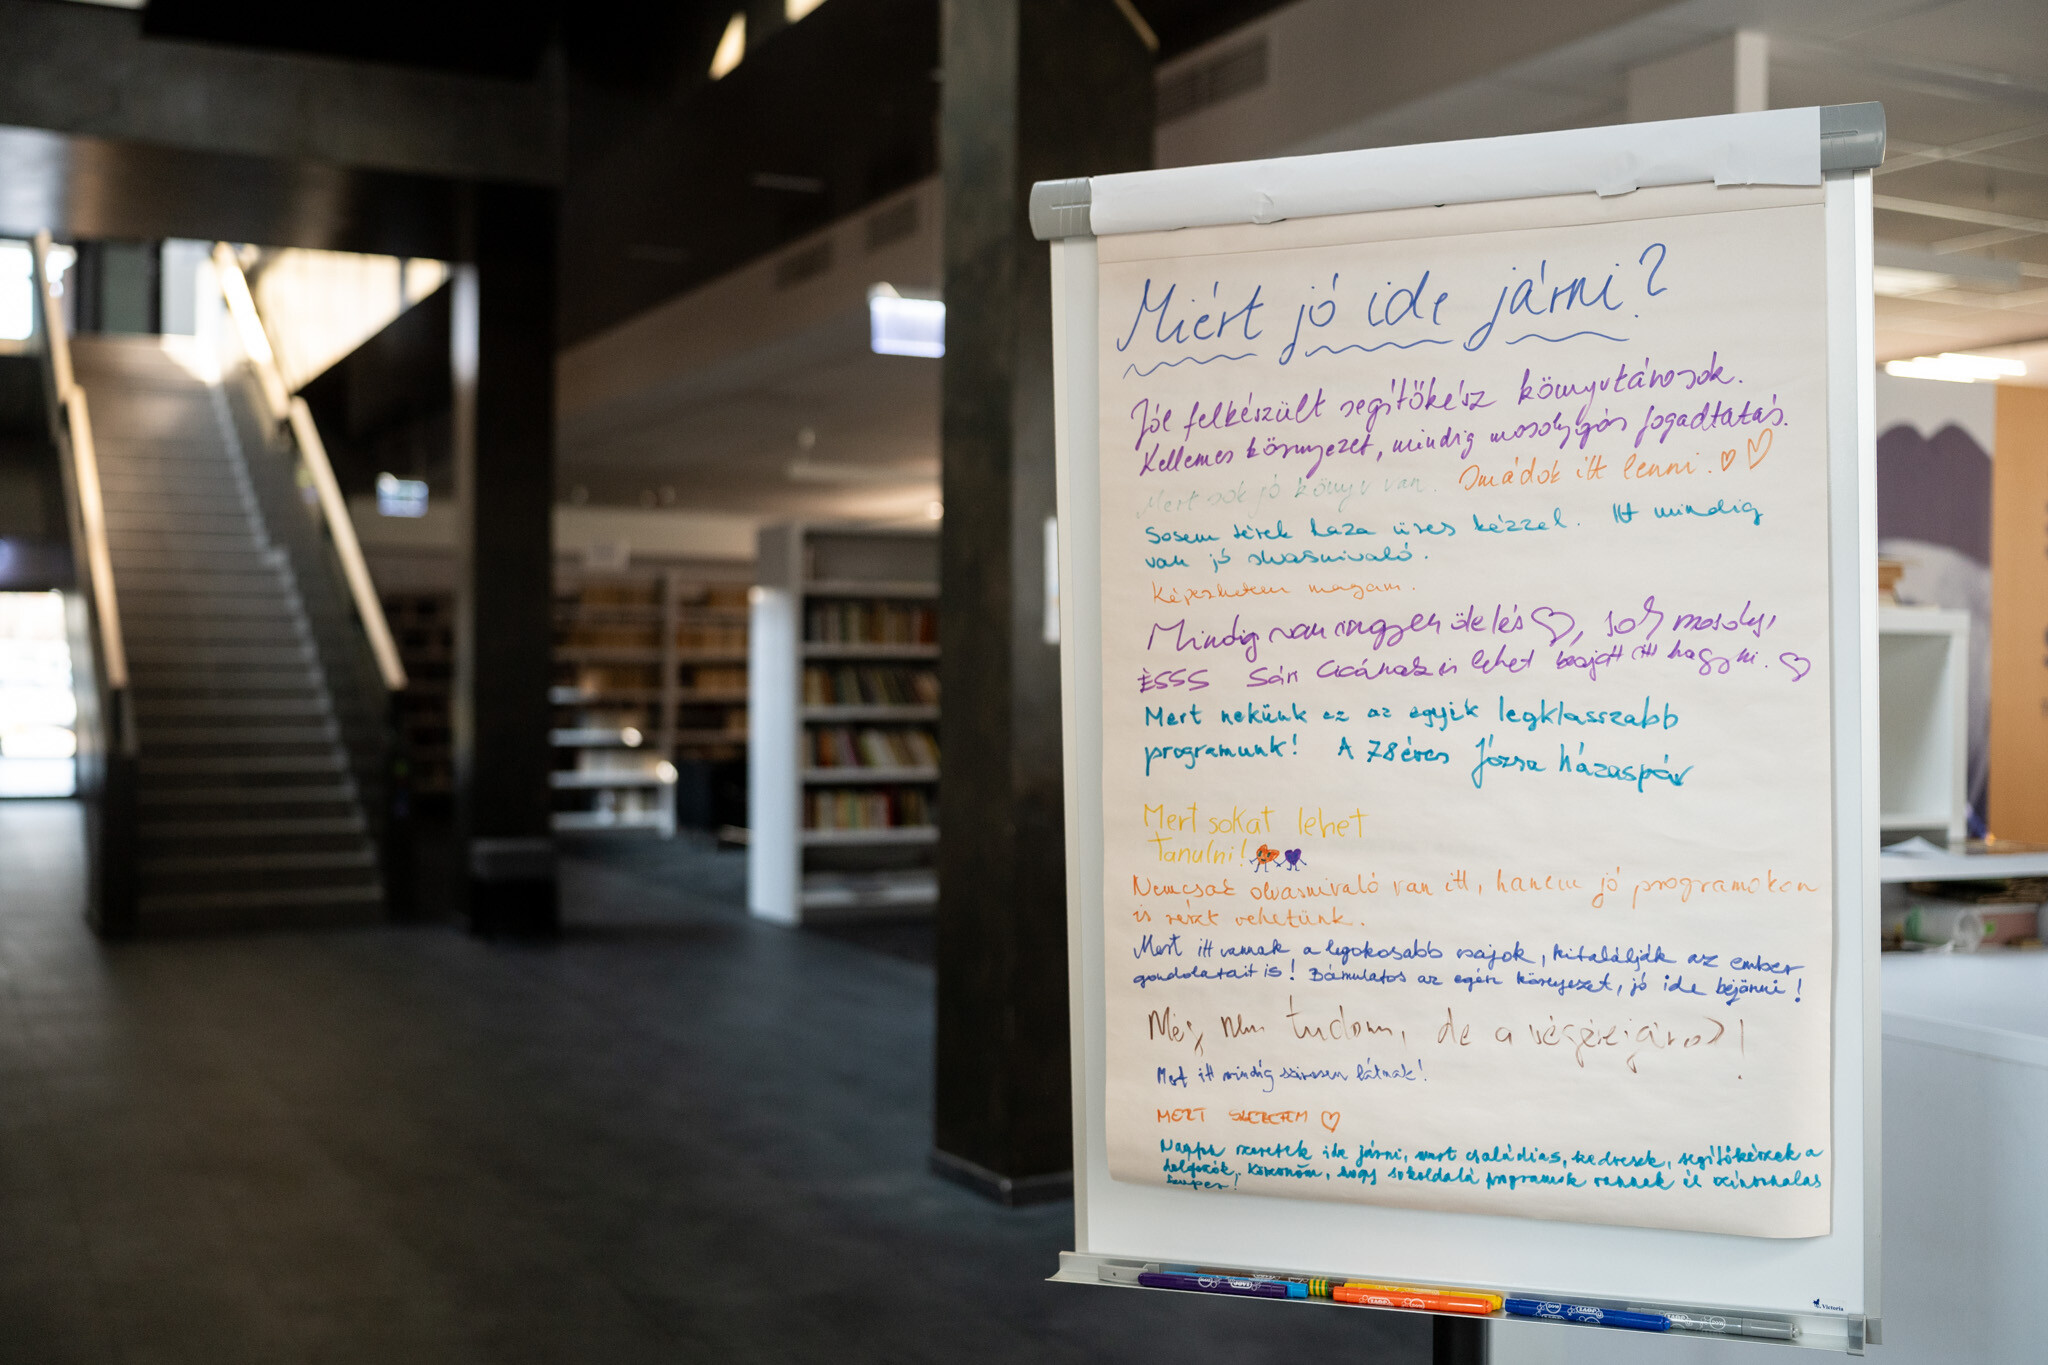 Miért jó ide járni?
Jól felkészült segítőkész könyvtárosok.
Kellemes környezet, mindig mosolygós fogadtatás.
Mert sok jó könyv van. Imádok itt lenni.
Sosem térek haza üres kézzel. Itt mindig
van jó olvasnivaló.
Képezhetem magam.
Mindig van ingyen ölelés, sok mosoly,
ÉSSS Sári cicának is lehet itt hagyni.
Mert nekünk ez az egyik legklasszabb
programunk! A 78 éves Józsa házaspár
Mert sokat lehet
tanulni!
Nemcsak olvasnivaló van itt, hanem jó programokon
is részt vehetünk.
Mert itt vannak a legokosabb, kitalálják az ember
gondolatait is! Bámulatos az egész környezet, jó ide bejönni!
Még nem tudom, de a végére
Mert itt mindig szívesen látnak!
MERT SZERETEM
Nagyon szeretek ide járni, mert családias, kedvesek, segítőkészek a
dolgozók. Köszönöm, hogy sokoldalú programok vannak és színvonalas
Victoria